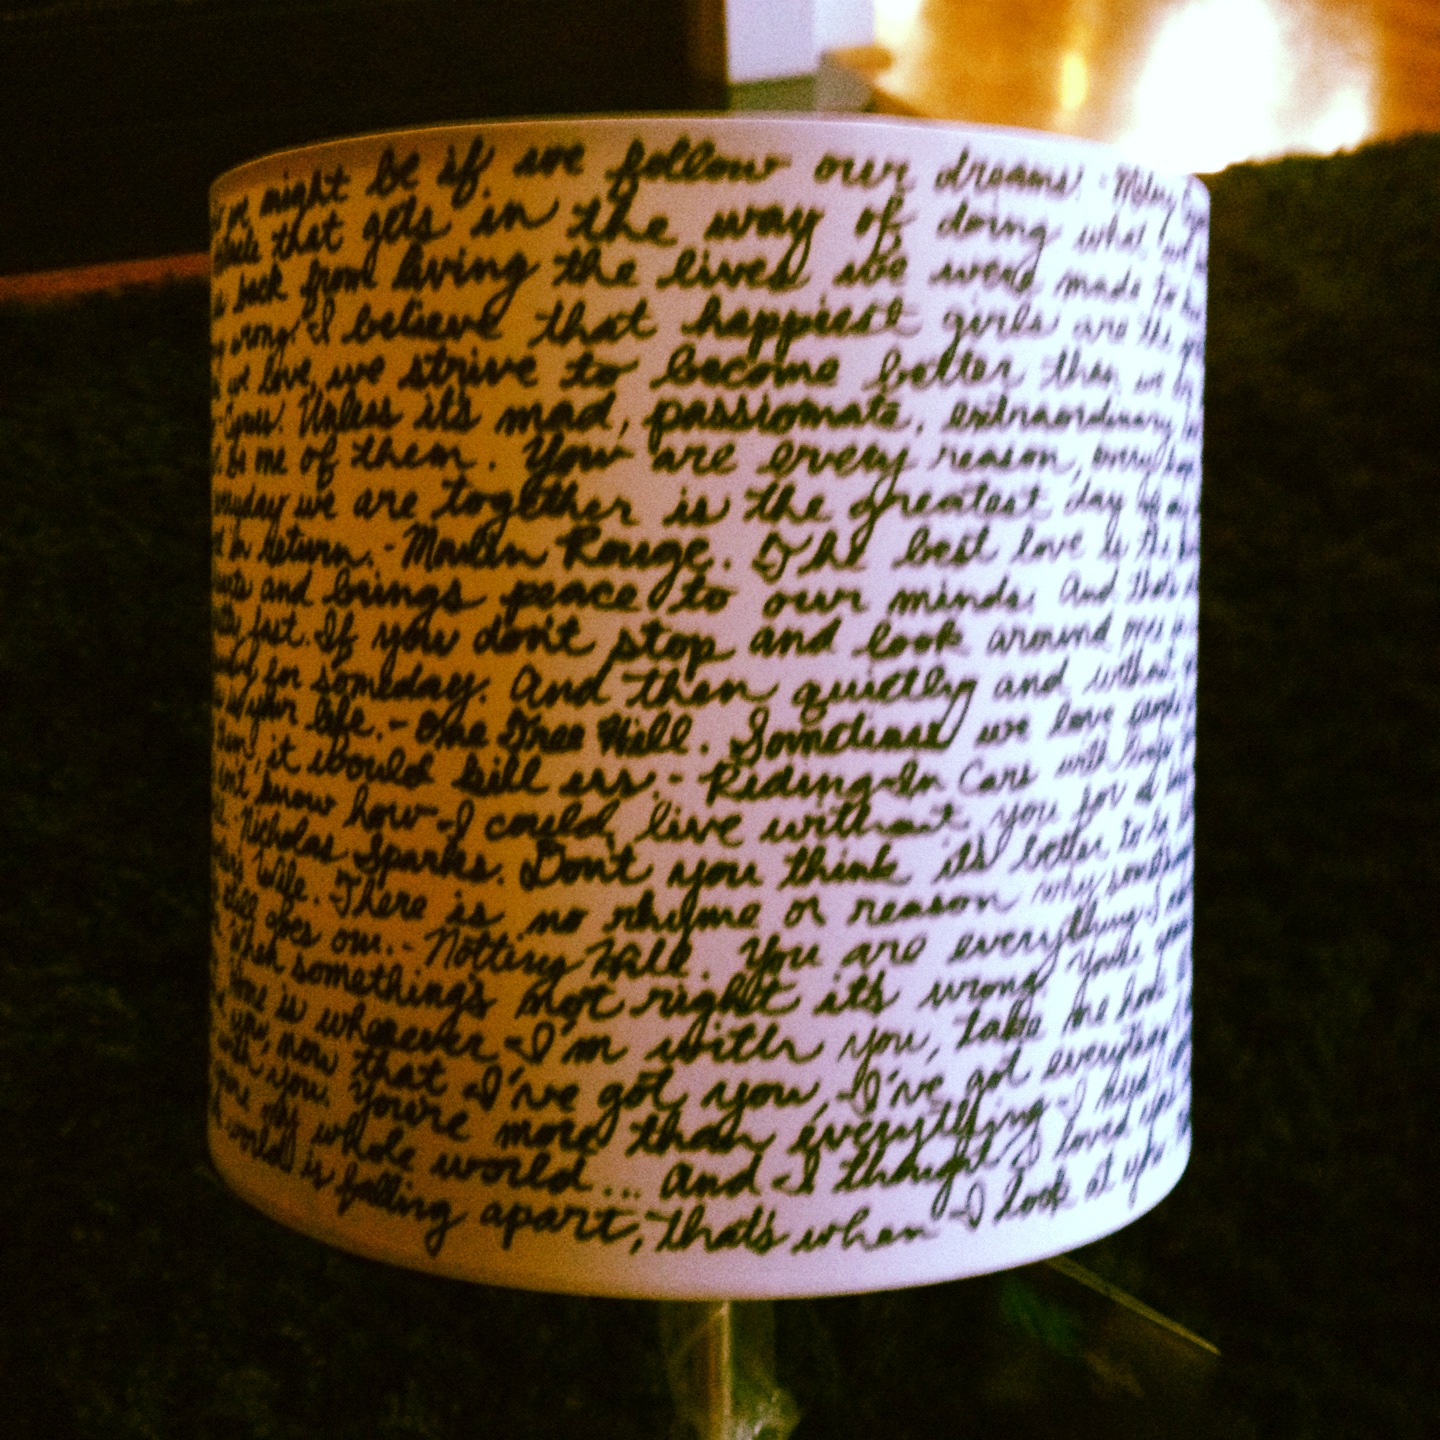 we might be if we follow our dreams. - Miley
that gets in the way of doing what we
back from living the lives we were made to
wrong. I believe that happiest girls are the
we love, we strive to become better than we
- Cyrus. Unless it's mad, passionate, extraordinary
be me of them. You are every reason, every
everyday we are together is the greatest day of my
in return. - Moulin Rouge. The best love is the
and brings peace to our minds. And that's
fast. If you don't stop and look around
for someday. And then quietly and without
is your life. - One Tree Hill. Sometimes we love people
them, it would kill us. - Riding In Cars with
don't know how I could live without you for a
Nicholas Sparks. Don't you think it's better to be
Wife. There is no rhyme or reason why
still goes on. - Notting Hill. You are everything I
when something's not right it's wrong. You're gonna
Home is wherever I'm with you, take me home
you, now that I've got you, I've got everything
with you. You're more than everything I need
my whole world... And I thought I loved
world is falling apart, that's when I look at